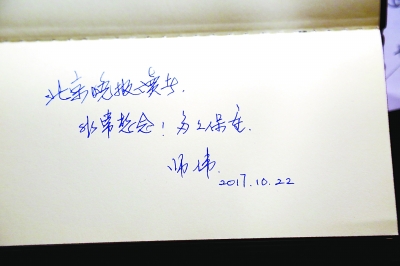 北京晚报读者.
非常想念！多多保重.
师伟.
2017.10.22